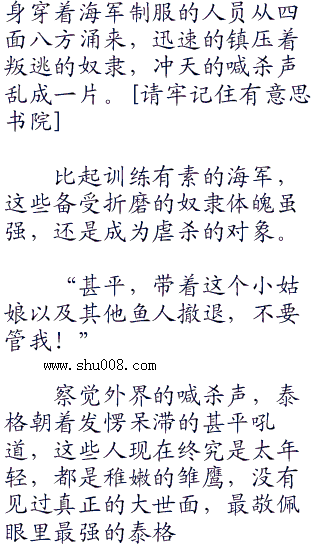 身穿着海军制服的人员从四
面八方涌来，迅速的镇压着
叛逃的奴隶，冲天的喊杀声
乱成一片。[请牢记住有意思
书院]
比起训练有素的海军，
这些备受折磨的奴隶体魄虽
强，还是成为虐杀的对象。
“甚平，带着这个小姑
娘以及其他鱼人撤退，不要
管我！”
www.shu008.com
察觉外界的喊杀声，泰
格朝着发愣呆滞的甚平吼
道，这些人现在终究是太年
轻，都是稚嫩的雏鹰，没有
见过真正的大世面，最敬佩
眼里最强的泰格